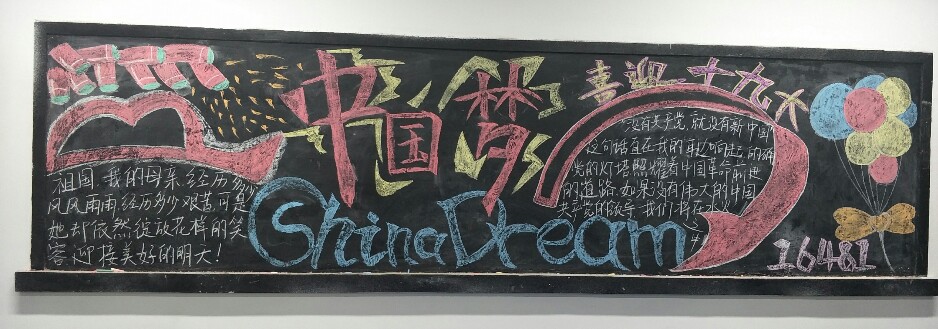 中国梦
喜迎十九大
China Dream
祖国,我的母亲,经历多少
风风雨雨,经历多少艰苦,可是
她却依然绽放花样的笑
容,迎接美好的明天!
"没有共产党,就没有新中国"
这句话旨在我的耳边响起,
党的灯塔照耀着中国革命前进
的道路,如果没有伟大的中国
共产党的领导,我们将在水火
之中
16481